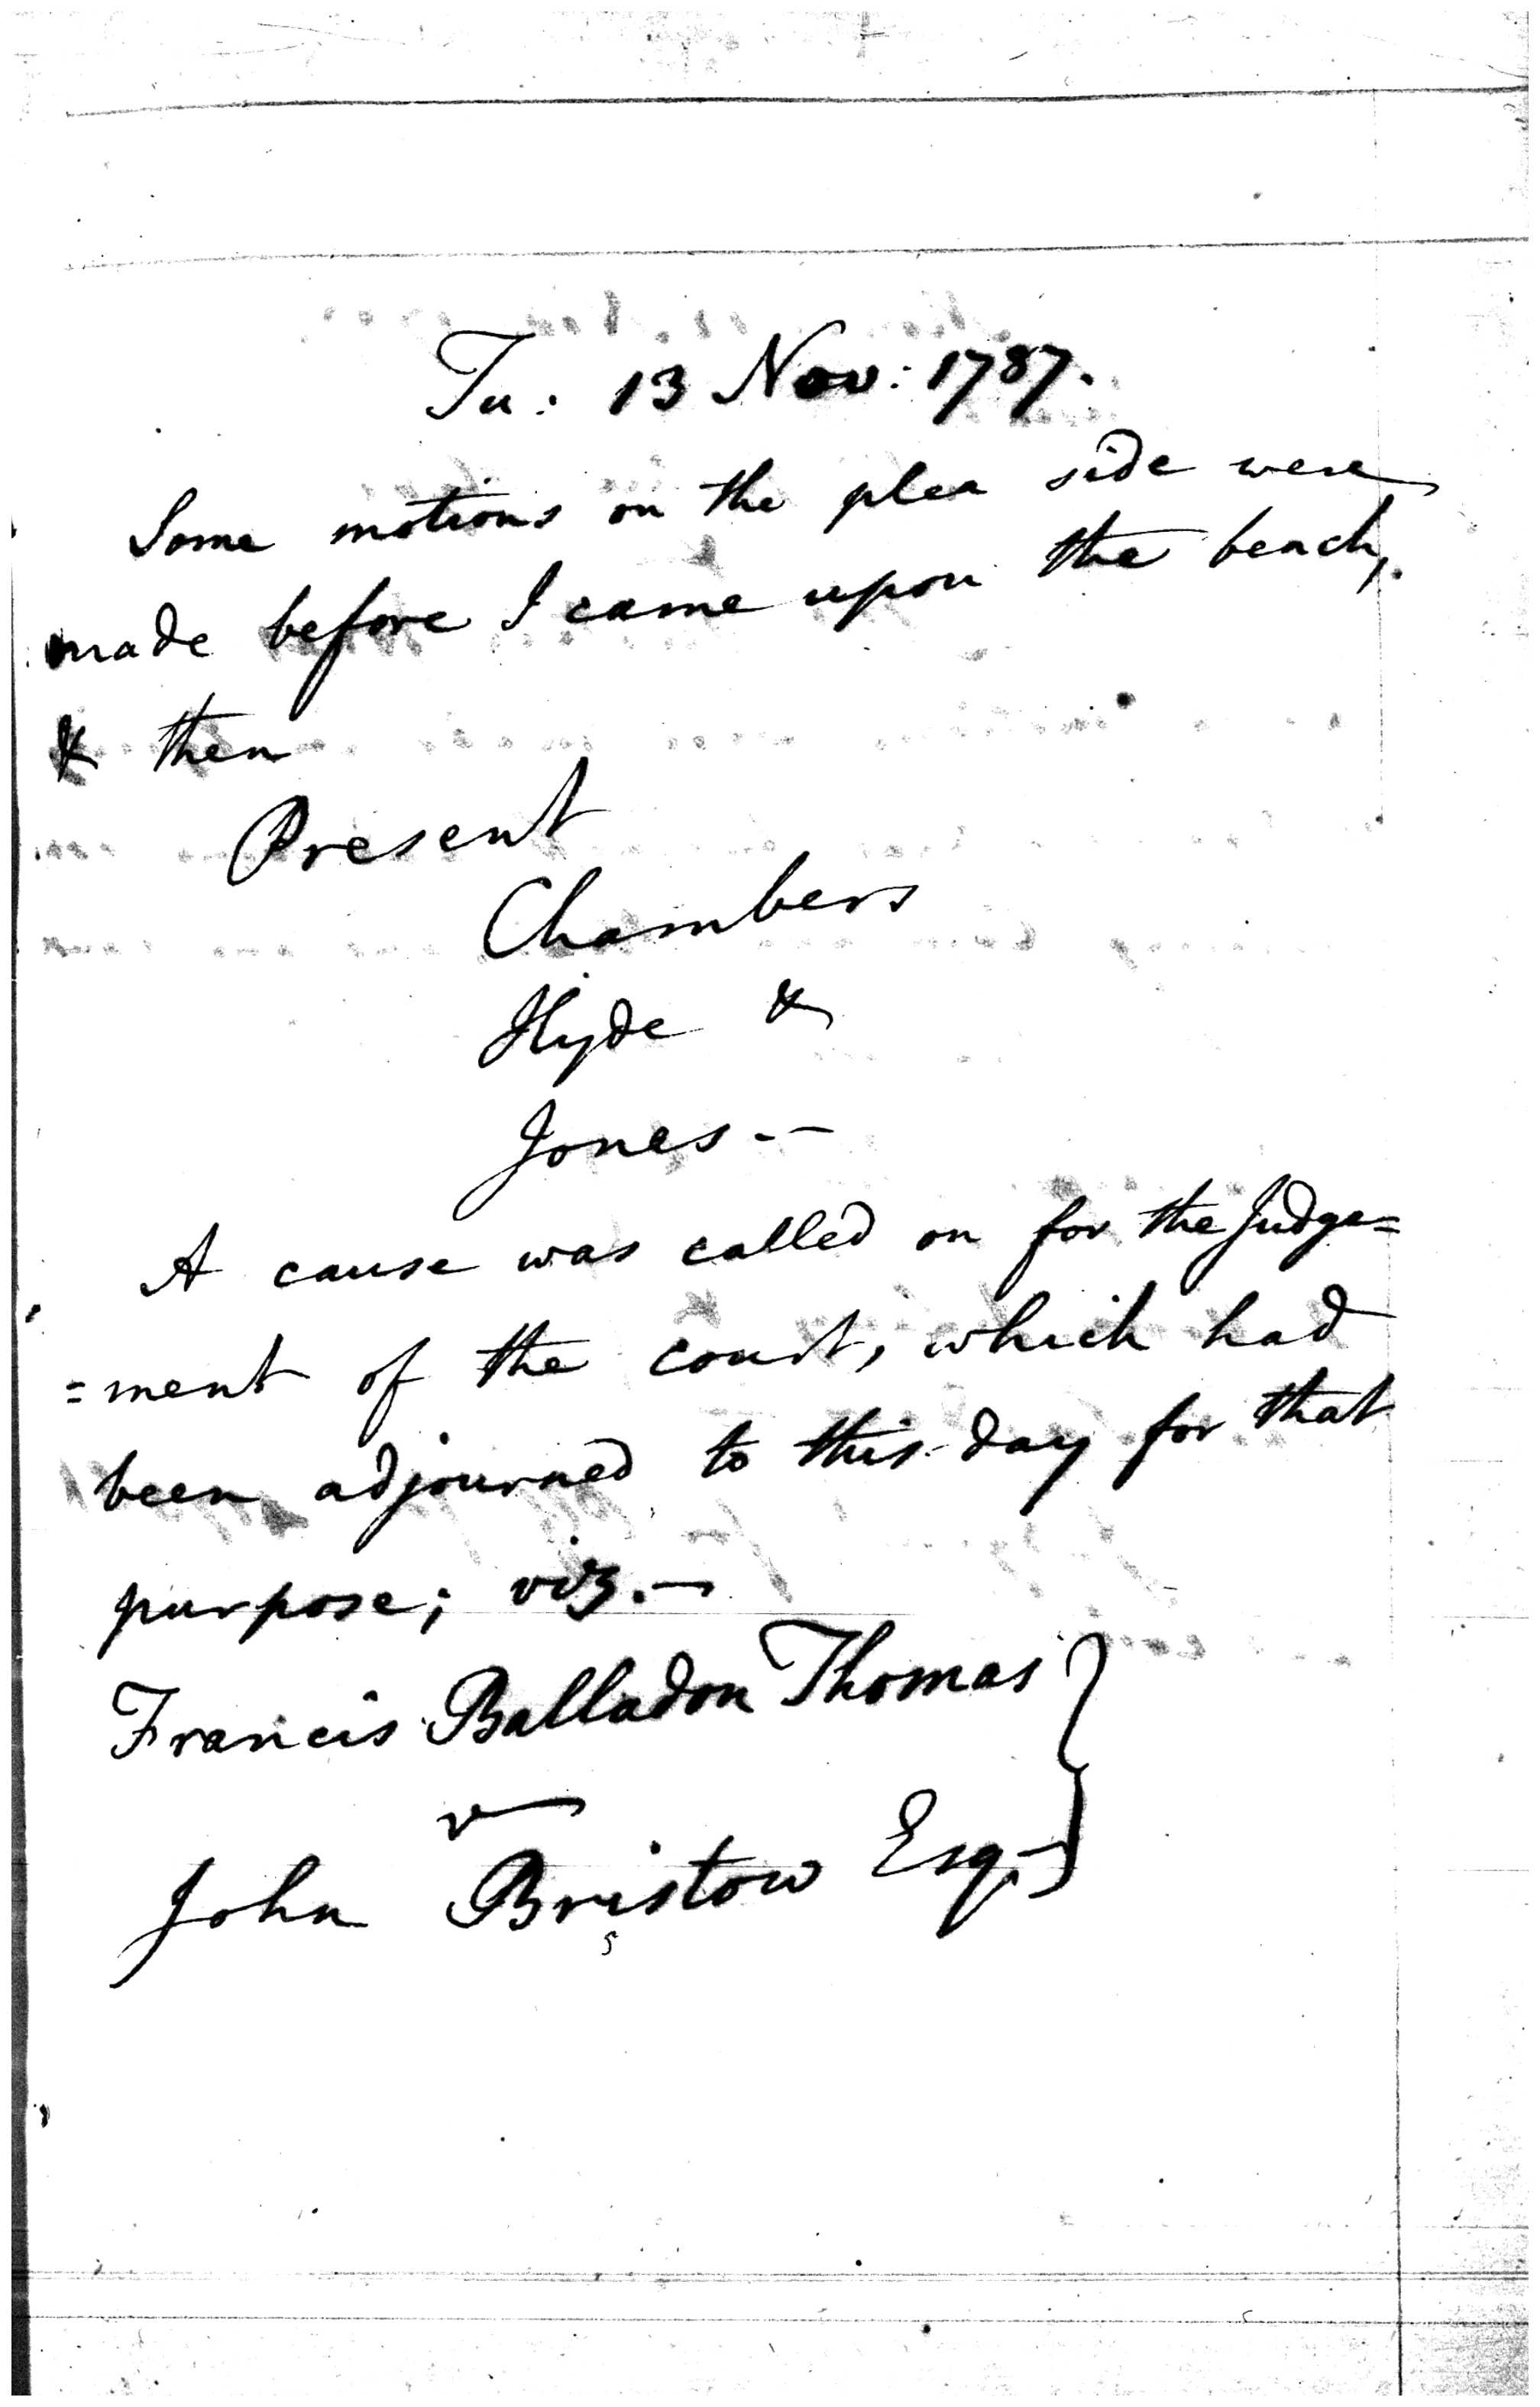 Tu: 13 Nov: 1787.
Some motions on the plea side were
made before I came upon the bench,
& then
Present
Chambers
Hyde &
Jones —
A cause was called on for the Judge=
=ment of the court, which had
been adjourned to this day for that
purpose; viz. —
Francis Balladon Thomas
v
John Bristow Esq.